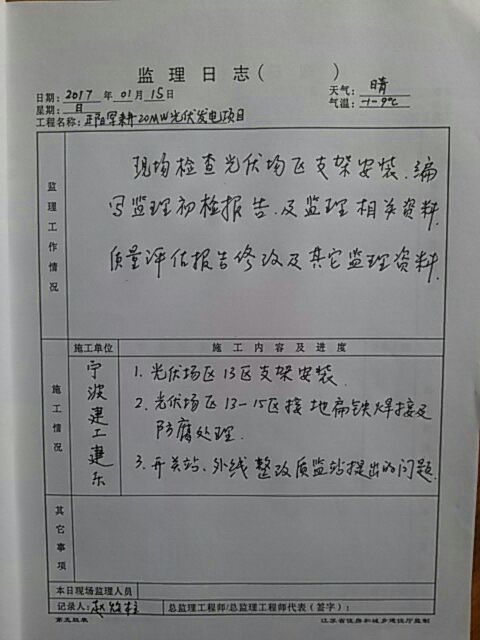 监理日志( )
日期: 2017 年 01月 15日 天气: 晴
星期: 日 气温: -1-9℃
工程名称: 正阳军耕20MW光伏发电项目
监理工作情况
现场检查光伏场区支架安装、编
写监理初检报告、及监理相关资料.
质量评估报告修改及其它监理资料.
施工单位 施工内容及进度
施工情况
宁波建工建乐
1. 光伏场区13区支架安装.
2. 光伏场区13-15区接地扁铁焊接及
防腐处理.
3. 开关站、外线整改质监站提出的问题.
其它事项
本日现场监理人员
记录人: 赵 柱 总监理工程师/总监理工程师代表(签字):
第五版表 江苏省住房和城乡建设厅监制